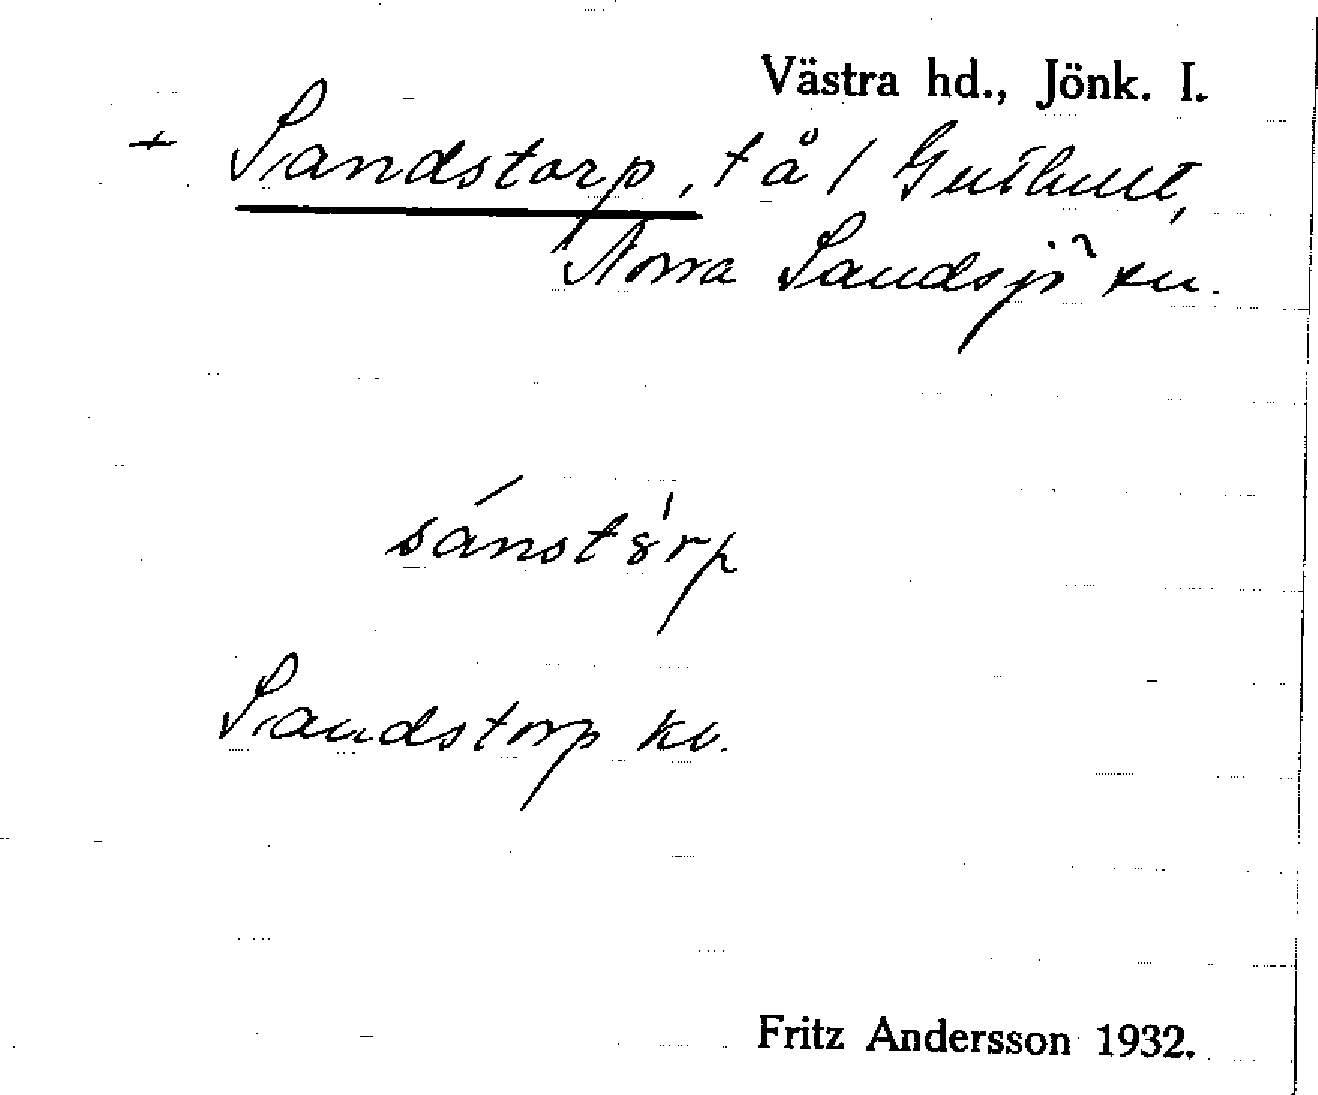 Västra hd., Jönk. l.
+ Sandstorp, t å / Gushult,
Norra Sandsjö sn.
sánstȣ́rp
Sandstorp kv.
Fritz Andersson 1932.